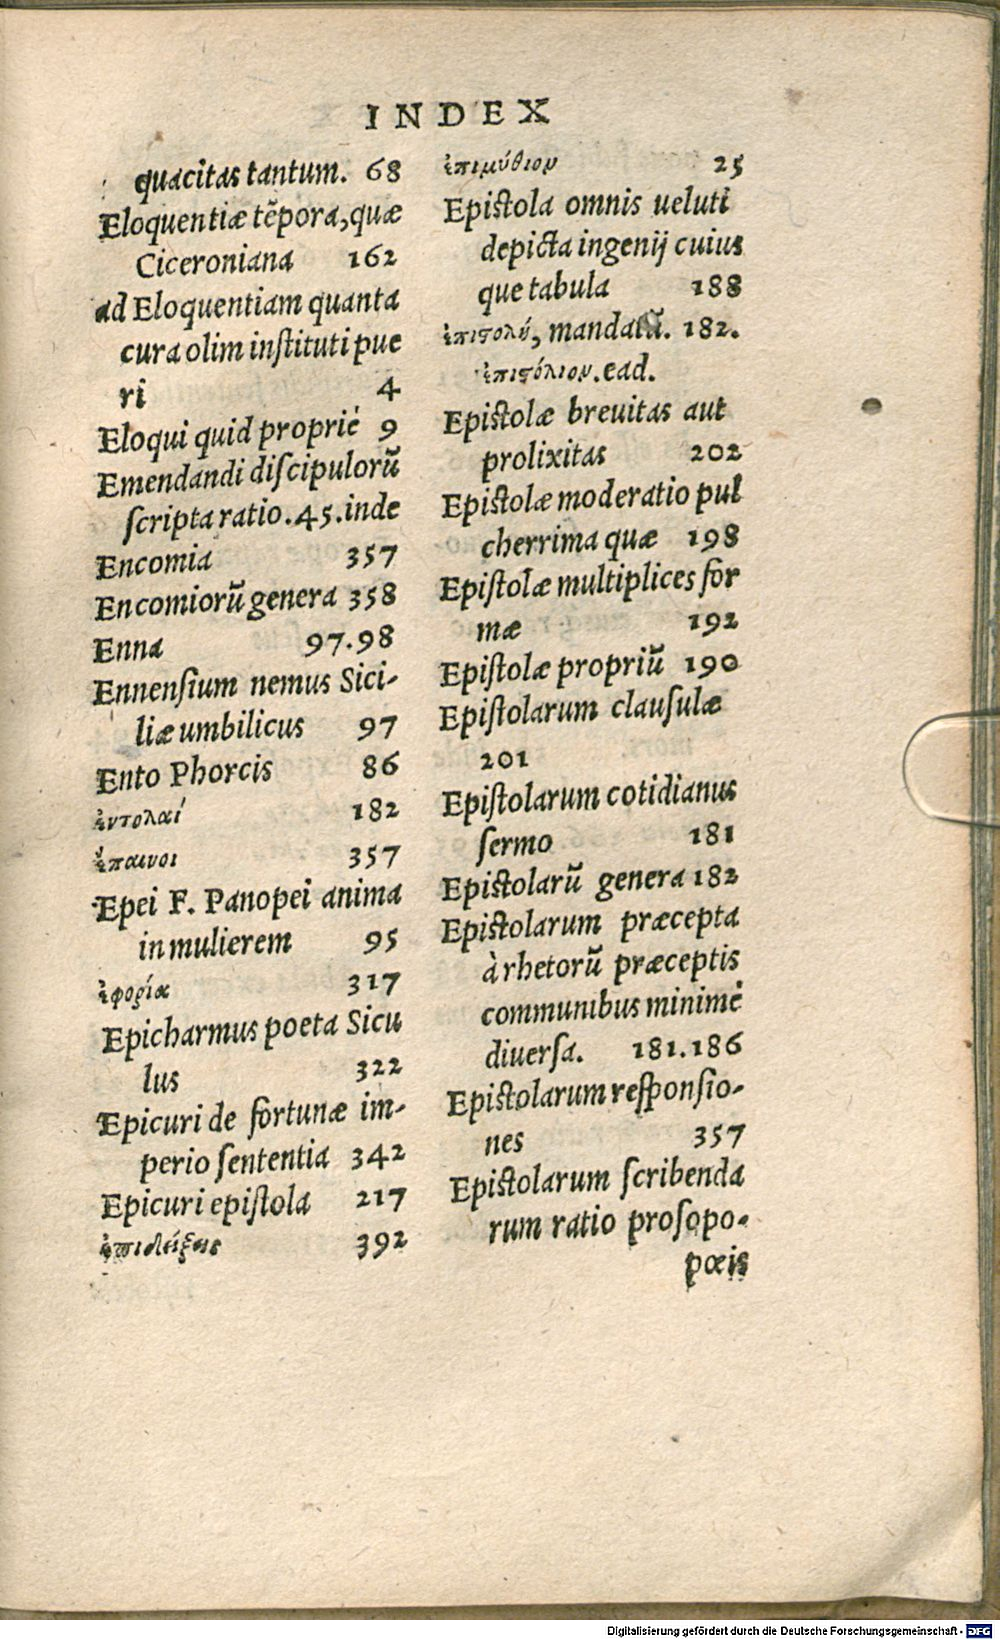 INDEX
quacitas tantum. 68
Eloquentiæ tẽpora, quæ
Ciceroniana 162
ad Eloquentiam quanta
cura olim instituti pue
ri 4
Eloqui quid propriè 9
Emendandi discipulorũ
scripta ratio. 45. inde
Encomia 357
Encomiorũ genera 358
Enna 97.98
Ennensium nemus Sici-
liæ umbilicus 97
Ento Phorcis 86
ἐντολαί 182
ἔπαινοι 357
Epei F. Panopei anima
in mulierem 95
ἐφορία 317
Epicharmus poeta Sicu
lus 322
Epicuri de fortunæ im-
perio sententia 342
Epicuri epistola 217
ἐπιδείξεις 392
ἐπιμύθιον 25
Epistola omnis ueluti
depicta ingenij cuius
que tabula 188
ἐπιστολὴ, mandatũ. 182.
ἐπιστόλιον. ead.
Epistolæ breuitas aut
prolixitas 202
Epistolæ moderatio pul
cherrima quæ 198
Epistolæ multiplices for
mæ 192
Epistolæ propriũ 190
Epistolarum clausulæ
201
Epistolarum cotidianus
sermo 181
Epistolarũ genera 182
Epistolarum præcepta
à rhetorũ præceptis
communibus minimè
diuersa. 181.186
Epistolarum responsio-
nes 357
Epistolarum scribenda
rum ratio prosopo-
pœis
Digitalisierung gefördert durch die Deutsche Forschungsgemeinschaft - DFG